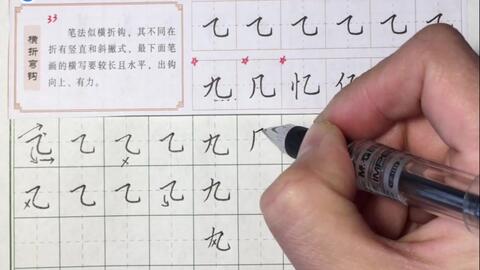 33
横折弯钩
笔法似横折钩，其不同在
折有竖直和斜撇式，最下面笔
画的横写要较长且水平，出钩
向上、有力。
乙 乙 乙 乙 乙 乙
九 凡 忆
乙 乙 乙 乙 九
乙 乙 乙 乙 九
M&G